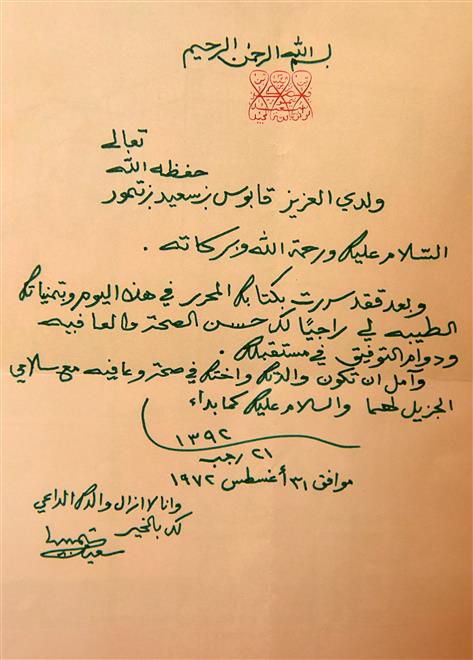 بسم الله الرحمن الرحيم
تعالى
حفظه الله
ولدي العزيز قابوس بن سعيد بن تيمور
السلام عليكم ورحمة الله وبركاته .
وبعد فقد سررت بكتابكم المحرر في هذا اليوم وبتمنياتكم
الطيبه لي راجيًا لك حسن الصحة والعافيه
ودوام التوفيق في مستقبلكم .
وآمل ان تكون والدتكم واختكم في صحة وعافيه مع سلامي
الجزيل لهما والسلام عليكم كما بداء
١٣٩٢
٢١ رجب
موافق ٣١ أغسطس ١٩٧٢
وانا لا ازال والدكم الداعي
لك بالخير
سعيد بن تيمور